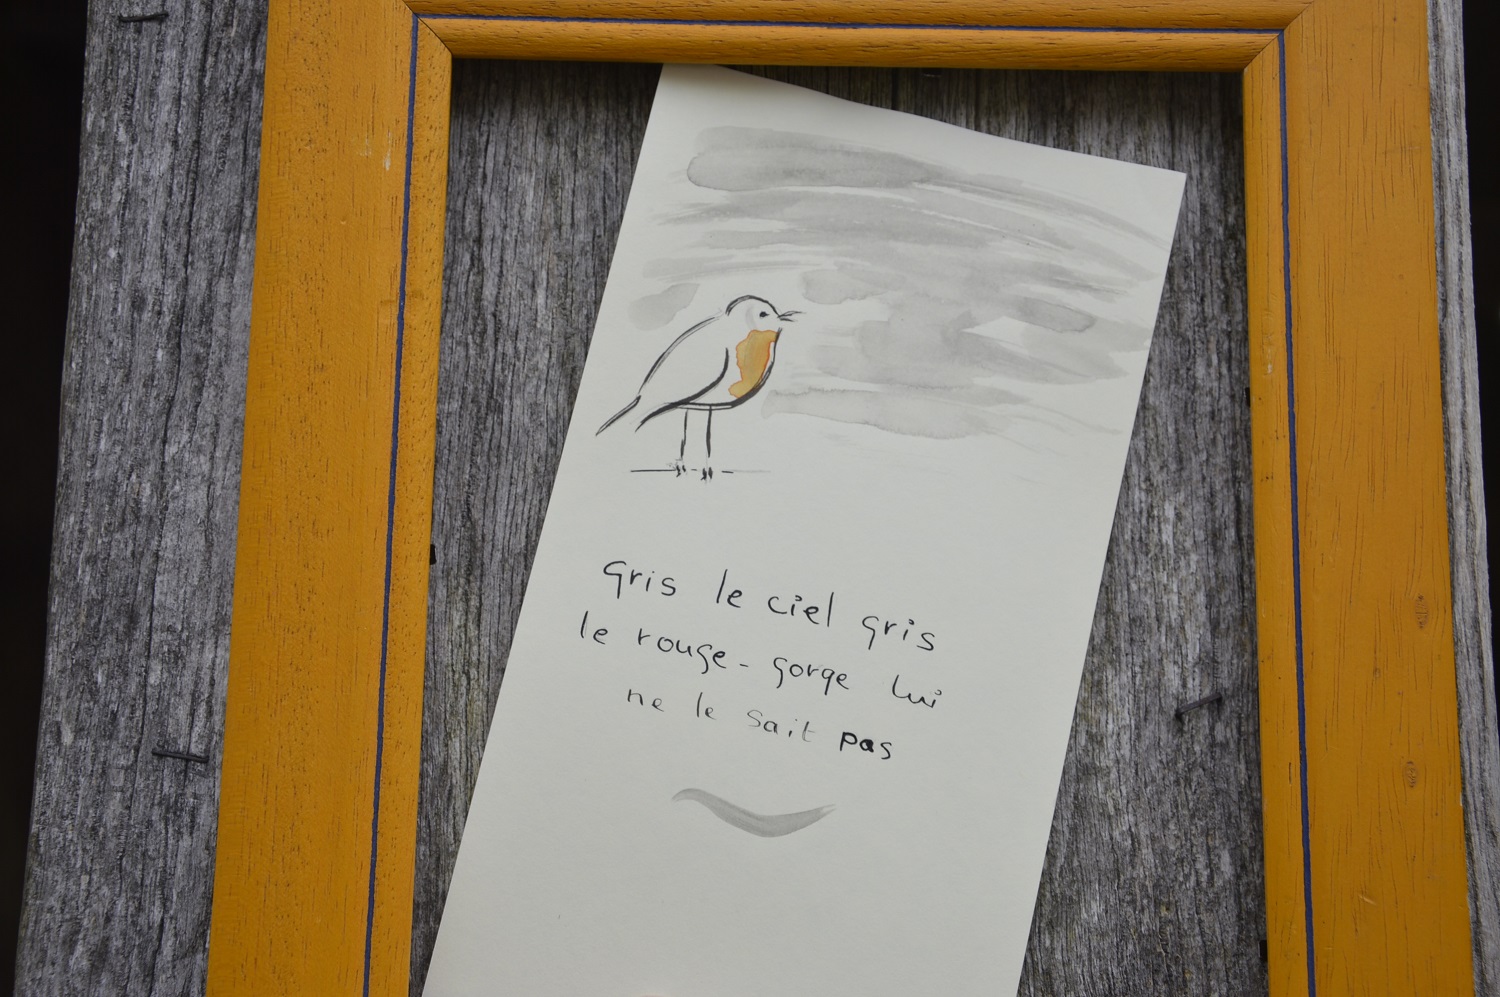 Gris le ciel gris
le rouge-gorge lui
ne le sait pas